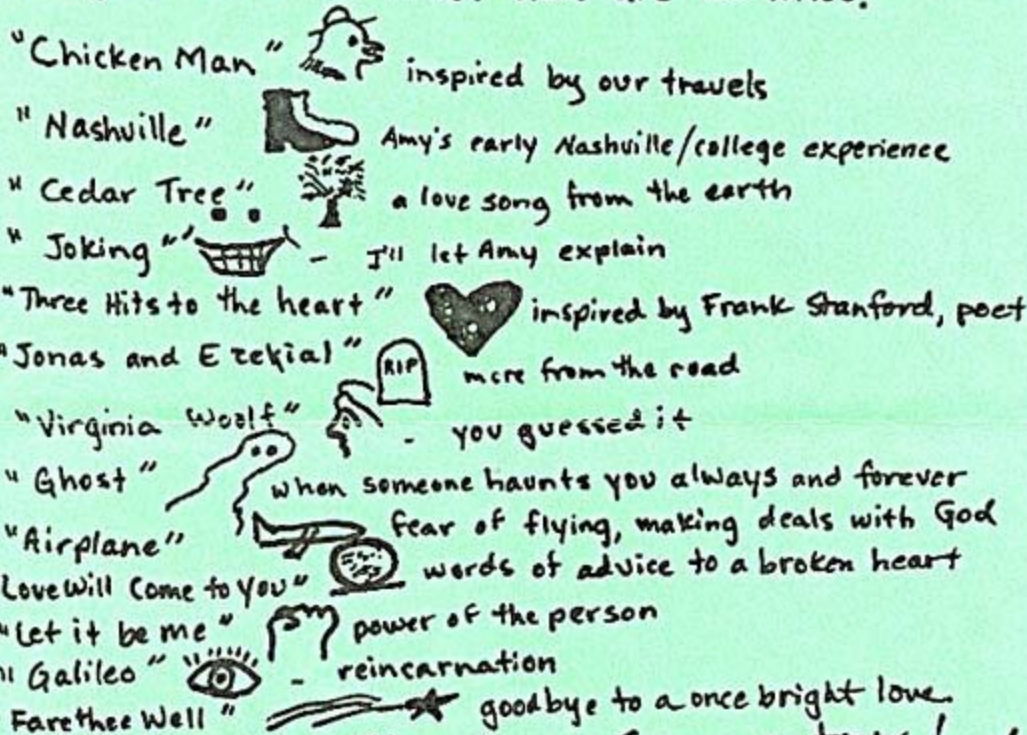 "Chicken Man" inspired by our travels
"Nashville" Amy's early Nashville/college experience
"Cedar Tree" a love song from the earth
"Joking" - I'll let Amy explain
"Three Hits to the heart" inspired by Frank Stanford, poet
"Jonas and Ezekial" RIP more from the road
"Virginia Woolf" - you guessed it
"Ghost" when someone haunts you always and forever
"Airplane" fear of flying, making deals with God
Love Will Come to You" words of advice to a broken heart
"Let it be me" power of the person
"Galileo" - reincarnation
Farethee Well" goodbye to a once bright love.